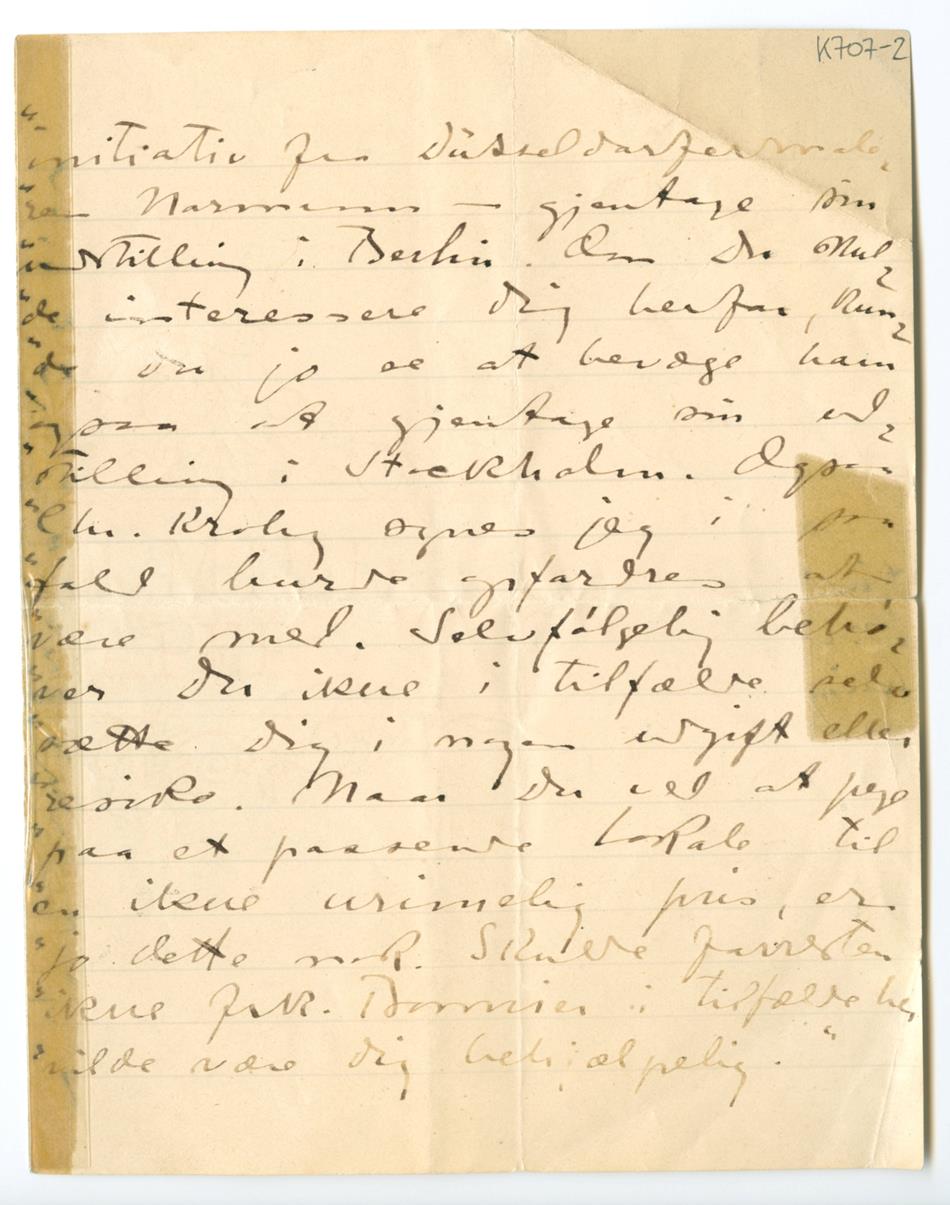 K707-2
"initiativ fra Düsseldorfermale-
"ren Normann — gjentage sin
"udstilling i Berlin. Om Du skul-
"de interessere Dig herfor, kun-
"de du jo se at bevæge ham
"ogsaa at gjentage sin ud-
"stilling i Stockholm. Ogsaa
"Chr. Krohg synes jeg i saa
"fald burde opfordres at
"være med. Selvfølgelig behø-
"ver Du ikke i tilfælde selv
"sætte Dig i nogen udgift eller
"resiko. Naar Du ved at pege
"paa et passende lokale til
"en ikke urimelig pris, er
"jo dette nok. Skulde forresten
"ikke frk. Bonnier i tilfælde her
"vilde være Dig behjælpelig."